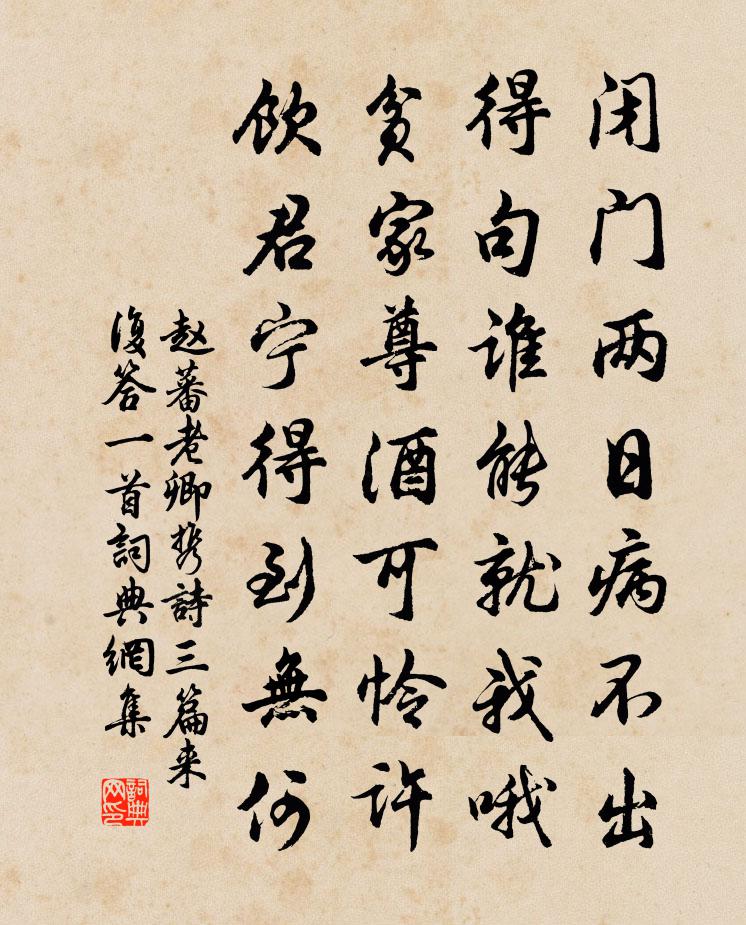 闭门两日病不出
得句谁能就我哦
贫家尊酒可怜许
饮君宁得到無何
赵蕃老卿携詩三篇来
復答一首詞典網集
詞典网印